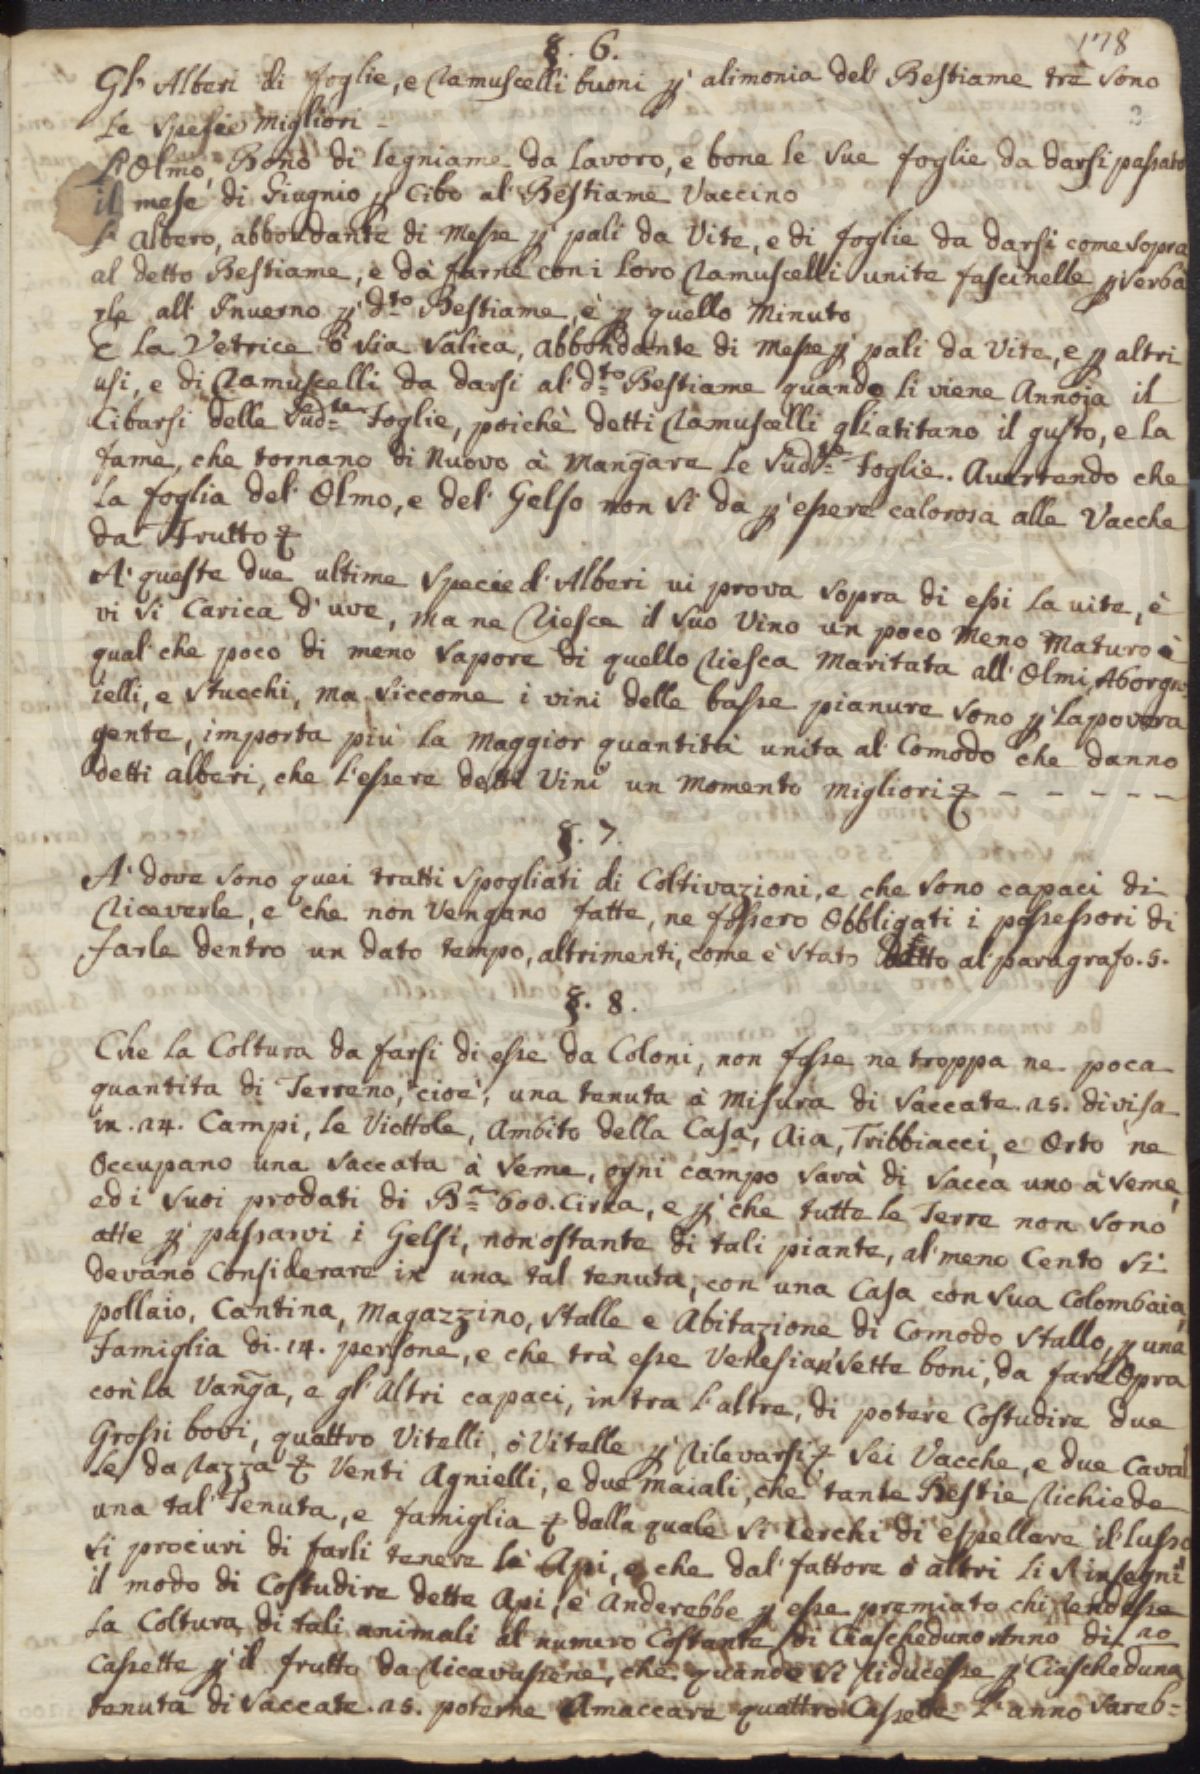 178
§. 6.
Gl' Alberi di foglie, e Ramuscelli buoni p alimonia del Bestiame trè sono
2
Le Spesie Migliori -
L'Olmo, Bono di legniame da lavoro, e bone le sue foglie da darsi passato
il mese di Giugnio p Cibo al Bestiame Vaccino
L' Albero, abbondante di Messe p pali da Vite, e di foglie da darsi come sopra
al detto Bestiame, e dà farne con i loro Ramuscelli unite fascinelle p serba
rle all' Inverno p d.to Bestiame, è p quello Minuto
E la Vetrice ò sia Salica, abbondante di Messe p pali da Vite, e p altri
usi, e di Ramuscelli da darsi al d.to Bestiame quando li viene Annoja il
Cibarsi delle Sud.te Foglie, poichè detti Ramuscelli gl'atitano il gusto, e la
fame, che tornano di Nuovo à Mangare le Sud.te Foglie. Avertendo che
la foglia del' Olmo, e del' Gelso non si da p essere calorosa alle Vacche
da Frutto
A' queste due ultime Specie d' Alberi vi prova sopra di essi la uite, è
vi si Carica d' uve, ma ne Riesce il suo Vino un poco Meno Maturo è
qual' che poco di meno Sapore di quello Riesca Maritata all' Olmi, Aborgn
ielli, e Stucchi, ma siccome i vini delle basse pianure sono p la povera
gente, importa più la Maggior quantità unita al Comodo che danno
detti alberi, che l'essere detti Vini un Momento Migliori - - - - -
§. 7.
A' dove sono quei tratti Spogliati di Coltivazioni, e che sono capaci di
Riceverle, e che non Vengano fatte, ne fossero Obbligati i possessori di
farle dentro un dato tempo, altrimenti, come è stato detto al paragrafo. 5.
§. 8.
Che la Coltura da farsi di esse da Coloni, non fosse ne troppa ne poca
quantita di Terreno, cioe', una tenuta à Misura di Saccate. 15. divisa
in. 14. Campi, le Viottole, Ambito della Casa, Aia, Tribbiacci, e Orto ne
Occupano una Saccata à Seme, ogni campo sarà di Sacca uno à Seme,
ed i suoi prodati di B.a 600. Circa, e p che tutte le Terre non sono
atte p passarvi i Gelsi, non'ostante di tali piante, al meno Cento si
devano Considerare in una tal tenuta, con una Casa con sua Colombaia,
pollaio, Cantina, Magazzino, Stalle e Abitazione di Comodo Stallo, p una
Famiglia di. 14. persone, e che trà esse Venesian Sette boni, da fare Opra
con la Vanga, e gl' Altri capaci, in tra L'altre, di potere Costudire due
Grossi bovi, quattro Vitelli, ò Vitelle p Rilevarsi Sei Vacche, e due Caval
le da Razza Venti Agnielli, e due Maiali, che tante Bestie Richiede
una tal' Tenuta, e famiglia dalla quale si cerchi di espellare il' lusso
si procuri di farli tenere le Api, e che dal' fattore ò altri li s'insegni
il modo di Costudire dette Api, è Anderebbe p esse premiato chi
la Coltura di tali animali al numero Costante di Ciascheduno Anno di 10
Cassette p il frutto da Ricavassene, che quando si Riducesse p Ciascheduna
tenuta di Saccate. 15. poterne Amaccare quattro Cassette L'anno Sareb=